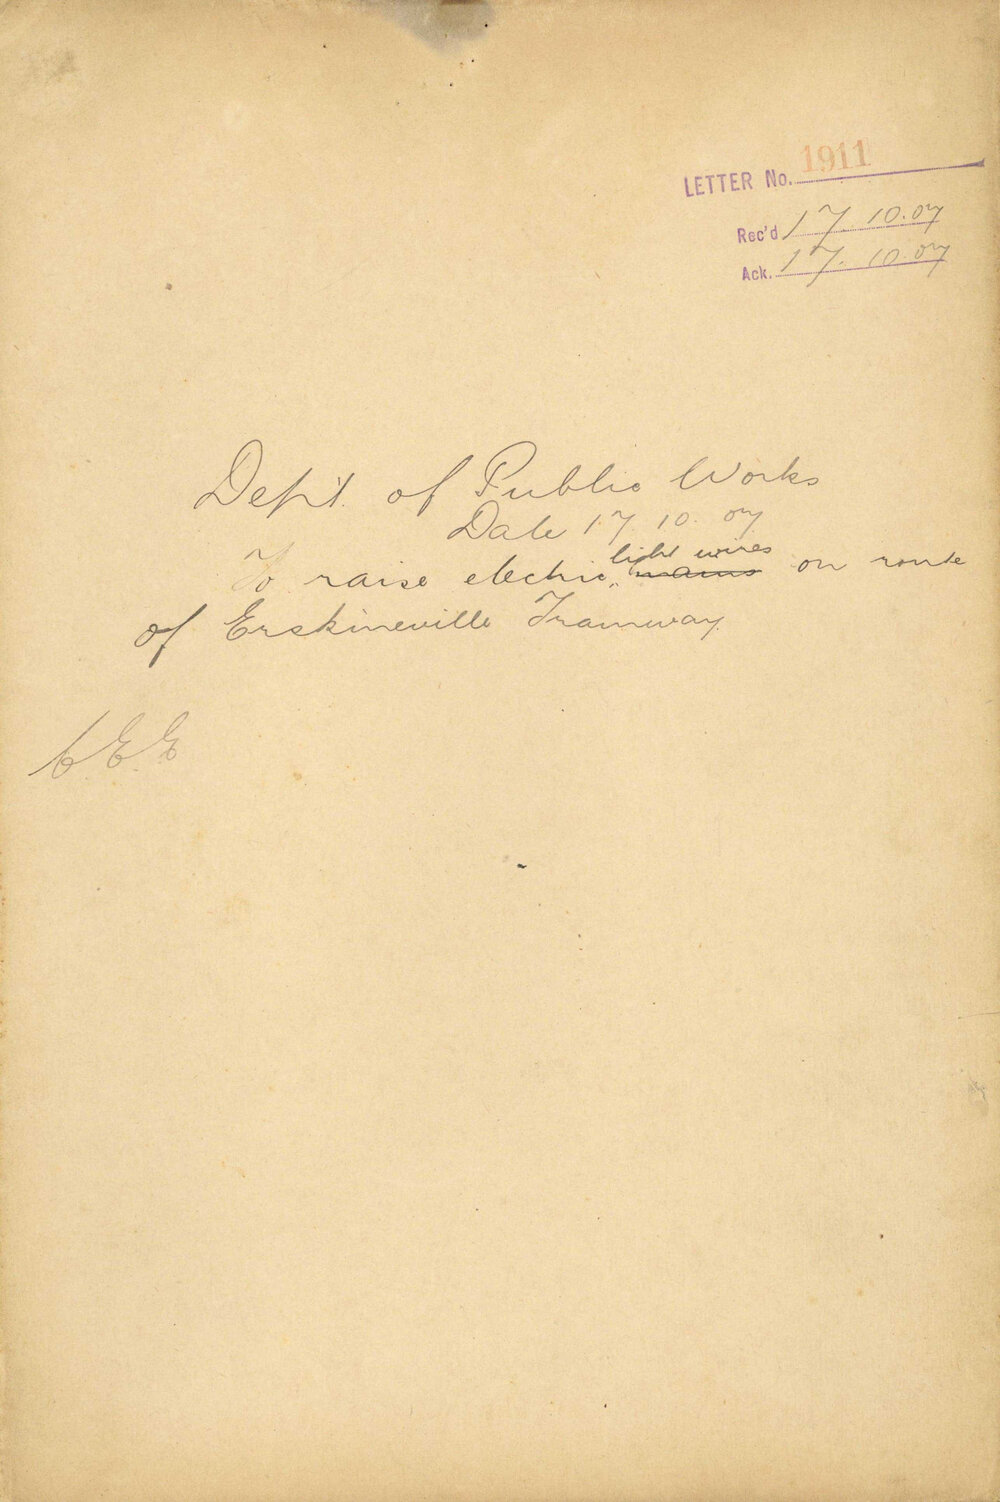 LETTER No. 1911
Rec'd 17. 10. 07
Ack. 17. 10. 07
Dep't. of Public Works
Date 17. 10. 07
light wires
To raise electric mains on route
of Erskineville Tramway.
C.E.E